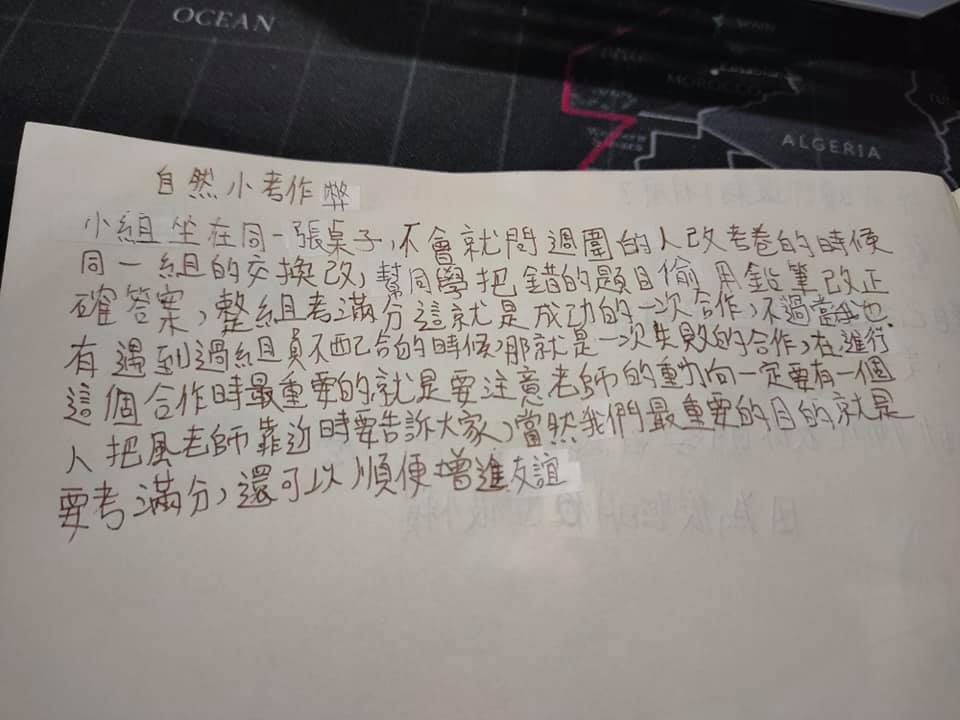 OCEAN
MOROCCO
ALGERIA
自然小考作弊
小組坐在同一張桌子,不會就問週圍的人改考卷的時候
同一組的交換改,幫同學把錯的題目偷用鉛筆改正
確答案,整組考滿分這就是成功的一次合作,不過當我也
有遇到過組員不配合的時候,那就是一次失敗的合作,在進行
這個合作時最重要的就是要注意老師的動向一定要有一個
人把風老師靠近時要告訴大家,當然我們最重要的目的就是
要考滿分,還可以順便增進友誼